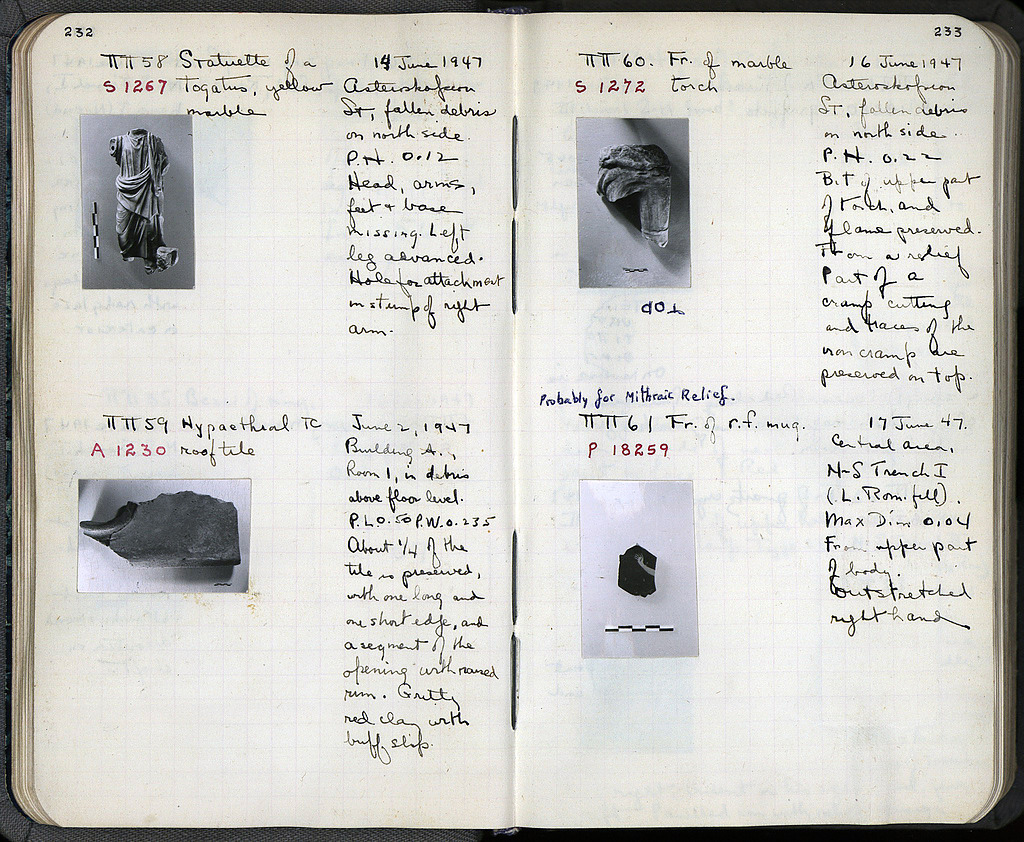 232
ΠΠ 58 Statuette of a
S 1267 Togatus, yellow
marble
14 June 1947
Asteroskopeion
St, fallen debris
on north side.
P.H. 0.12
Head, arms,
feet + base
missing. Left
leg advanced.
Hole for attachment
in stump of right
arm.
ΠΠ 59 Hypaethral TC
A 1230 roof tile
June 2, 1947
Building A.,
Room 1, in debris
above floor level.
P.L 0.50 P.W. 0.235
About 1/4 of the
tile is preserved,
with one long and
one short edge, and
a segment of the
opening with raised
rim. Gritty
red clay with
buff slip.
233
ΠΠ 60. Fr. of marble
S 1272 torch
16 June 1947
Asteroskopeion
St, fallen debris
on north side.
P.H. 0.22
Bit of upper part
of torch, and
flame preserved.
From a relief
Part of a
cramp cutting
and traces of the
iron cramp are
preserved on top.
top
Probably for Mithraic Relief.
ΠΠ 61 Fr. of r.f. mug.
P 18259
17 June 47.
Central area,
N-S Trench I
(L. Rom. fill).
Max Dim 0.04
From upper part
of body.
Outstretched
right hand